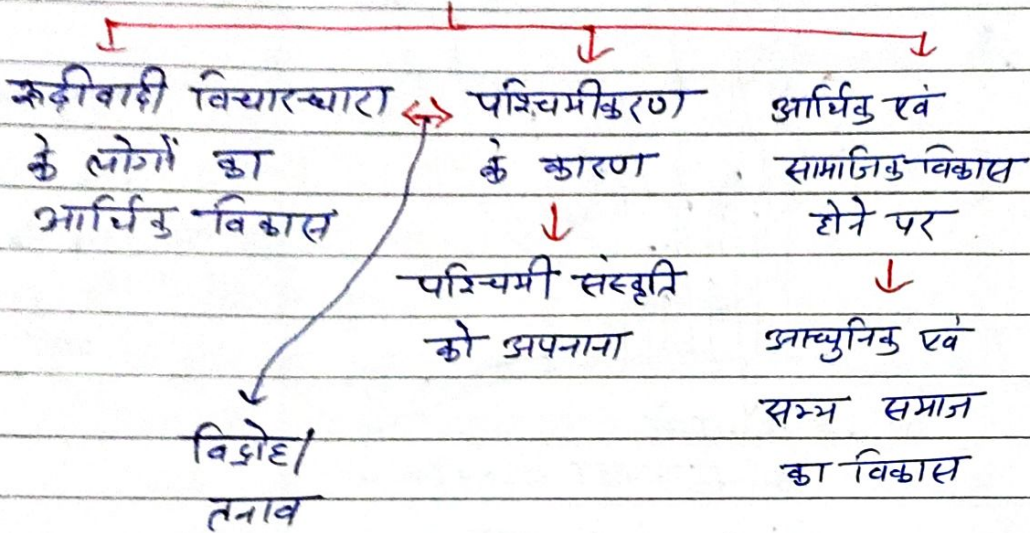 रूढ़ीवादी विचारधारा
के लोगों का
आर्थिक विकास
पश्चिमीकरण
के कारण
पश्चिमी संस्कृति
को अपनाना
आर्थिक एवं
सामाजिक विकास
होने पर
आधुनिक एवं
सभ्य समाज
का विकास
विद्रोह/
तनाव